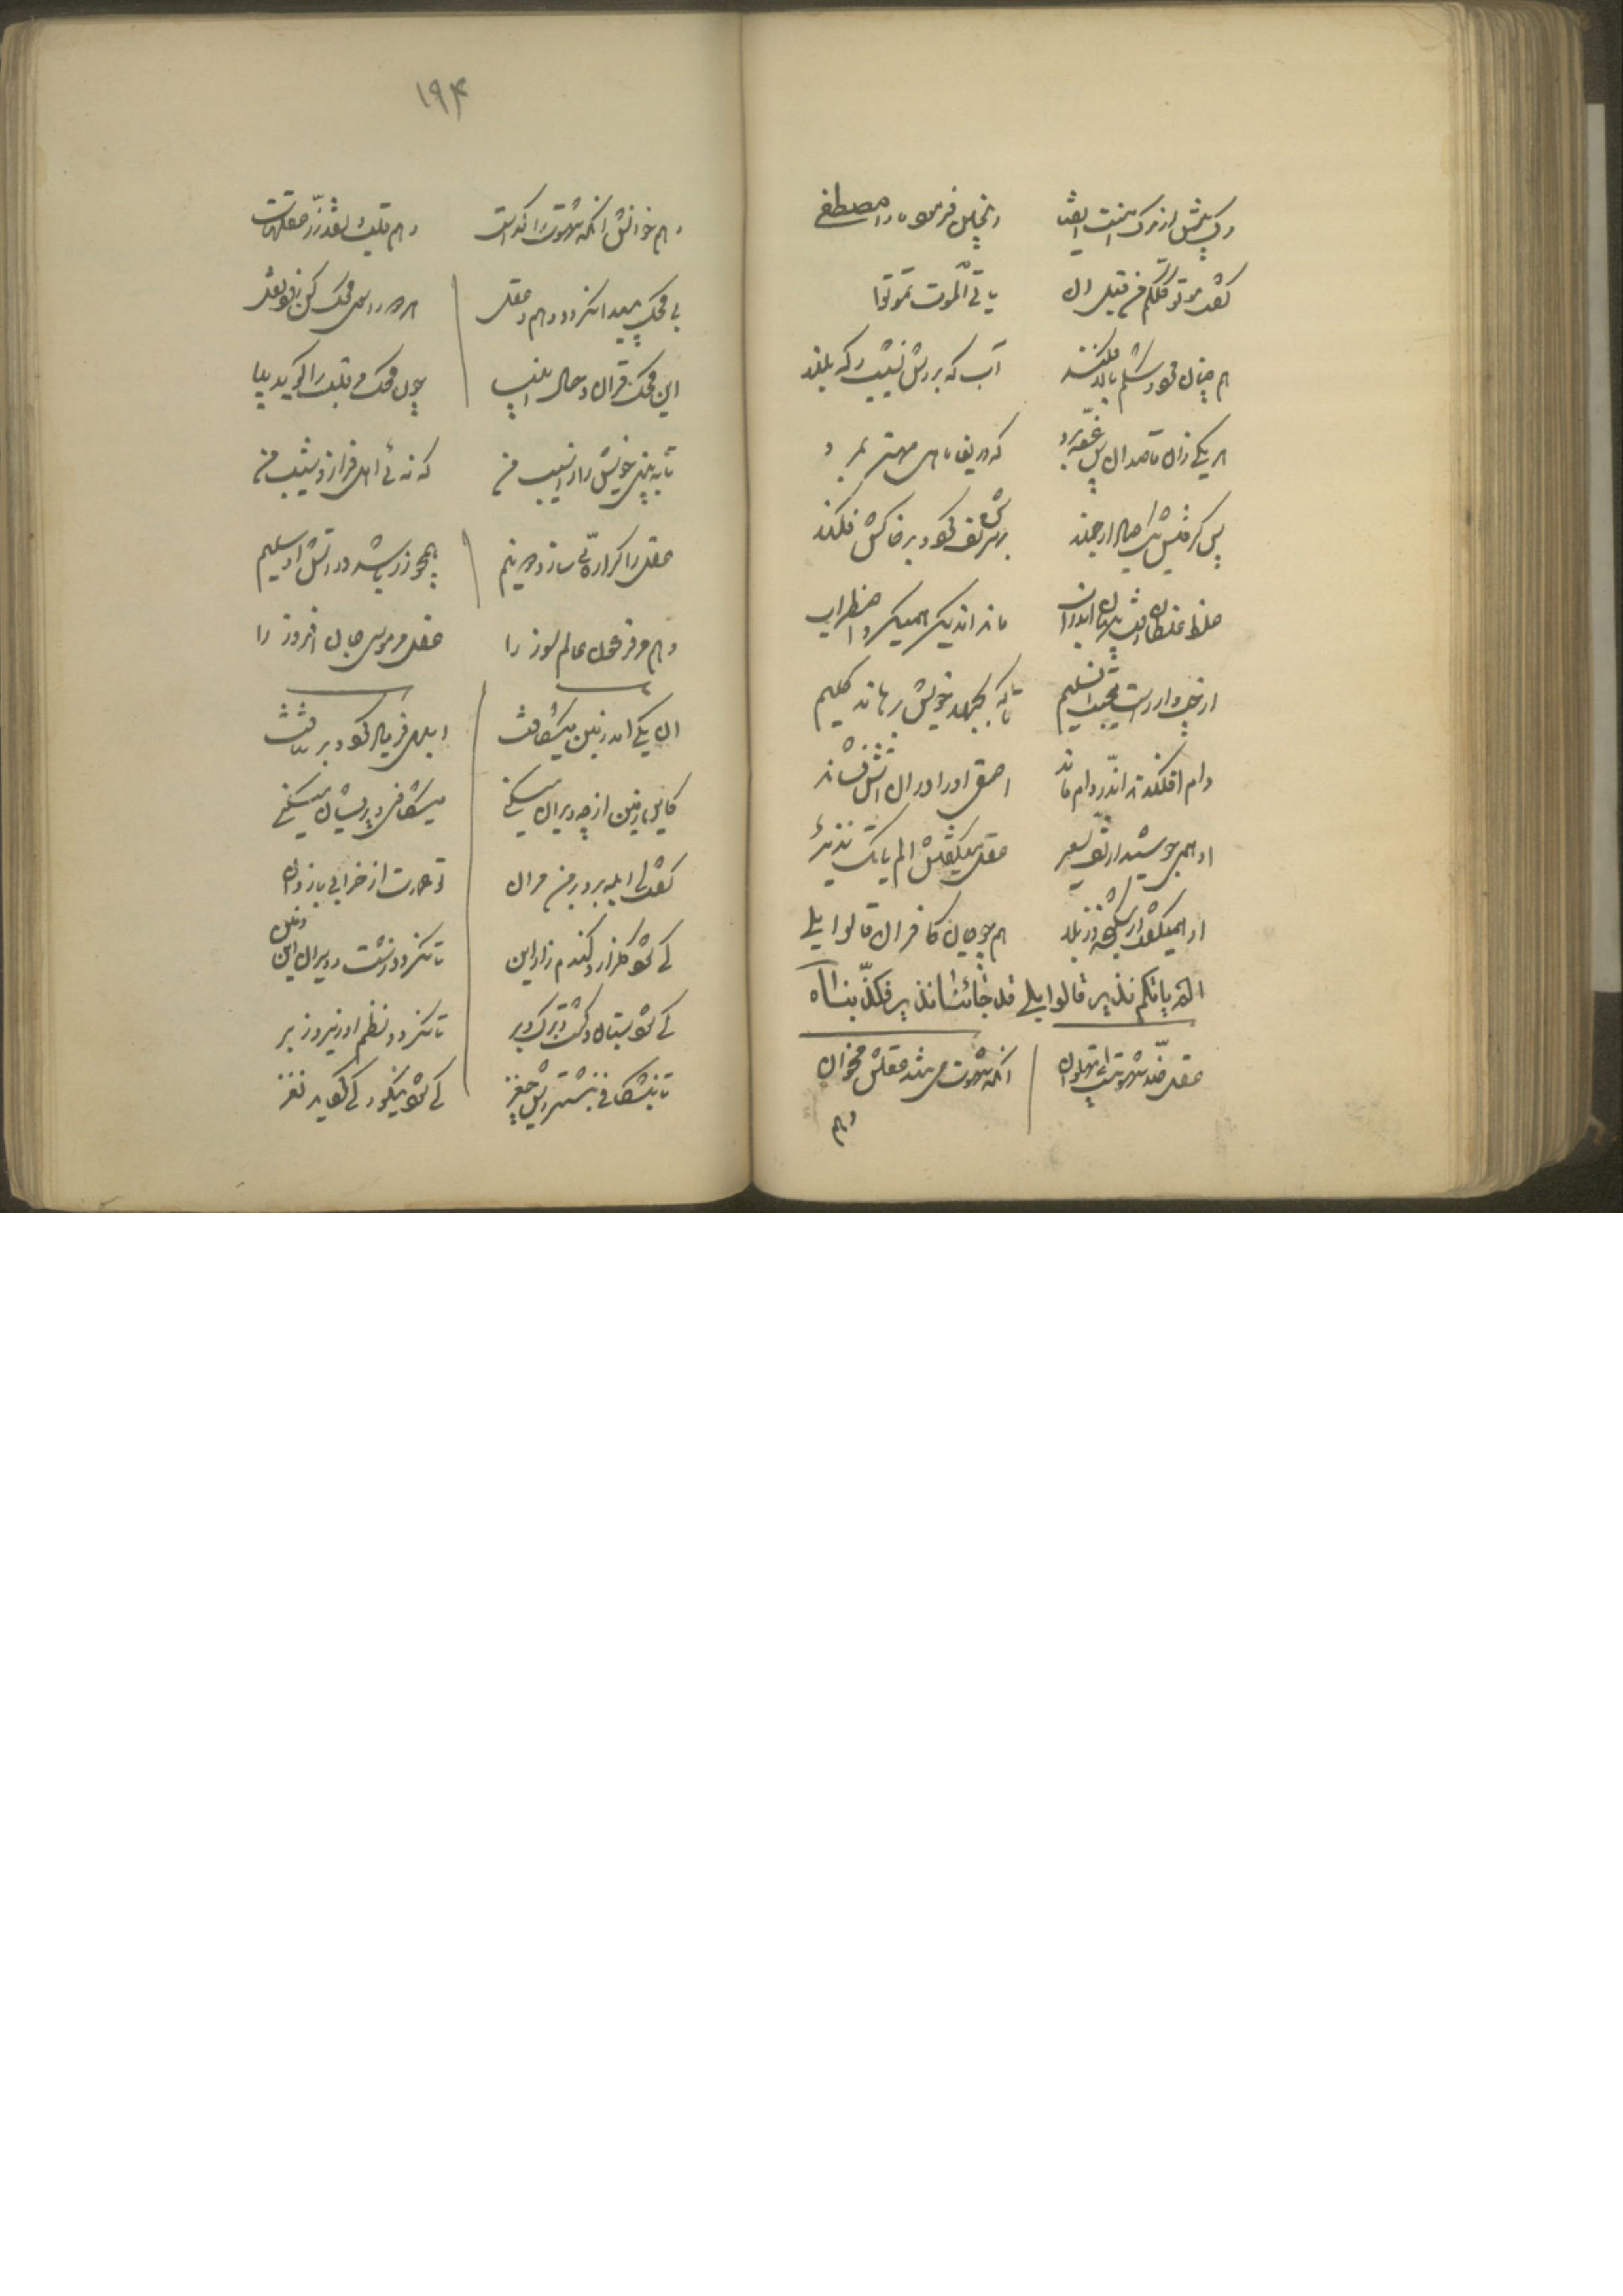 مرگ پیش از مرگ امنست ای فتا این چنین فرمود ما را مصطفی
گفت موتوا کلکم من قبل ان یاتی الموت تموتوا
هم چنان مرد و شکم بالا فکند آب که بردش نشیب و که بلند
هر یکی زان قاصدان بس غصه برد که دریغا ماهی مهتر بمرد
پس گرفتش یک صیاد ارجمند برسرش تف کرد و بر خاکش فکند
غلط غلطان رفت پنهان اندر آب ماند آن دیگر همیکرد اضطراب
از چپ و از راست میجست آن سلیم تا که بجهد خویش برهاند گلیم
دام افکندند اندر دام ماند احمقی او را در آن آتش نشاند
او همی جوشید از تف سعیر عقل میگفتش الم یاتک نذیر
او همیگفت از شکنجه وز بلا هم چو جان کافران قالوا بلی
الم یاتکم نذیر قالوا بلی قد جائنا نذیر فکذبنا
عقل ضد شهوتست ای پهلوان آنکه شهوت می تند عقلش مخوان
وهم
۱۹۴
وهم خوانش آنکه شهوت را گداست وهم قلب نقد زر عقلهاست
بی محک پیدا نگردد وهم و عقل هر دو را سوی محک کن زود نقل
این محک قرآن و حال انبیا چون محک مر قلب را گوید بیا
تا به بینی خویش را ز آسیب من که نه ئی اهل فراز و شیب من
عقل را گر اره ئی سازد دو نیم همچو زر باشد در آتش او سلیم
وهم مر فرعون عالم سوز را عقل مر موسی جان افروز را
آن یکی آمد زمین میشکافت ابلهی فریاد کرد و بر نتافت
کاین زمین از چه ویران میکنی میشکافی و پریشان میکنی
گفت ای ابله برو بر من مران تو عمارت از خرابی باز دان
کی شود گلزار و گندم زار این تا نگردد زشت و ویران این زمین
کی شود بستان و کشت و برگ و بر تا نگردد نظم او زیر و زبر
تا بنشکافی بنشتر ریش چغز کی شود نیکو و کی گردید نغز